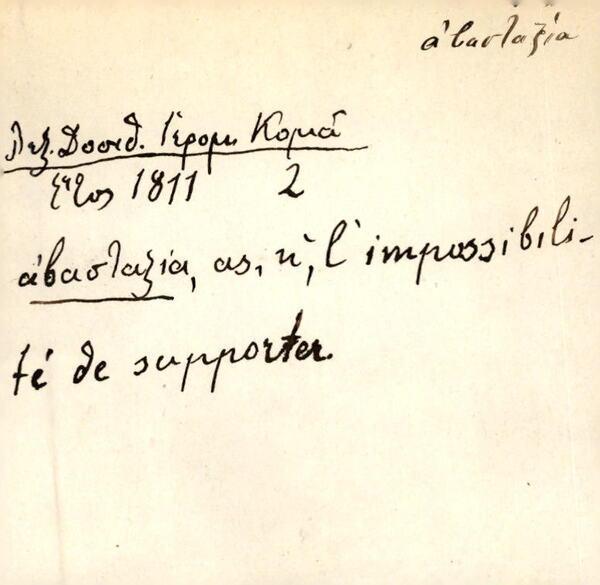 ἀβασταξία
Λεξ. Δοσιθ. Ἱερομ. Κομᾶ
ἔτος 1811 2
ἀβασταξία, ας, ἡ, l'impossibili-
té de supporter.